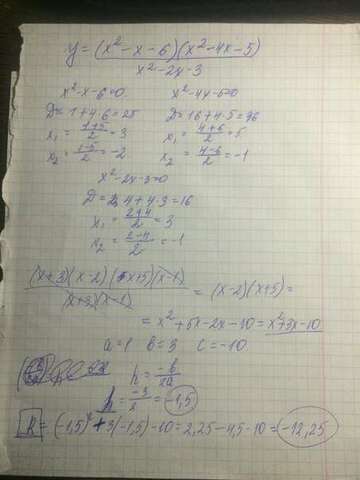 y = (x² - x - 6)(x² - 4x - 5) / x² - 2x - 3
x² - x - 6 = 0 x² - 4x - 5 = 0
D = 1 + 4·6 = 25 D = 16 + 4·5 = 36
x₁ = (1+5)/2 = 3 x₁ = (4+6)/2 = 5
x₂ = (1-5)/2 = -2 x₂ = (4-6)/2 = -1
x² - 2x - 3 = 0
D = 4 + 4·3 = 16
x₁ = (2+4)/2 = 3
x₂ = (2-4)/2 = -1
(x+3)(x-2)(x+5)(x-1) / (x+3)(x-1) = (x-2)(x+5) =
= x² + 5x - 2x - 10 = x² + 3x - 10
a = 1 b = 3 c = -10
h = -b/2a
h = -3/2 = -1,5
k = (-1,5)² + 3(-1,5) - 10 = 2,25 - 4,5 - 10 = -12,25